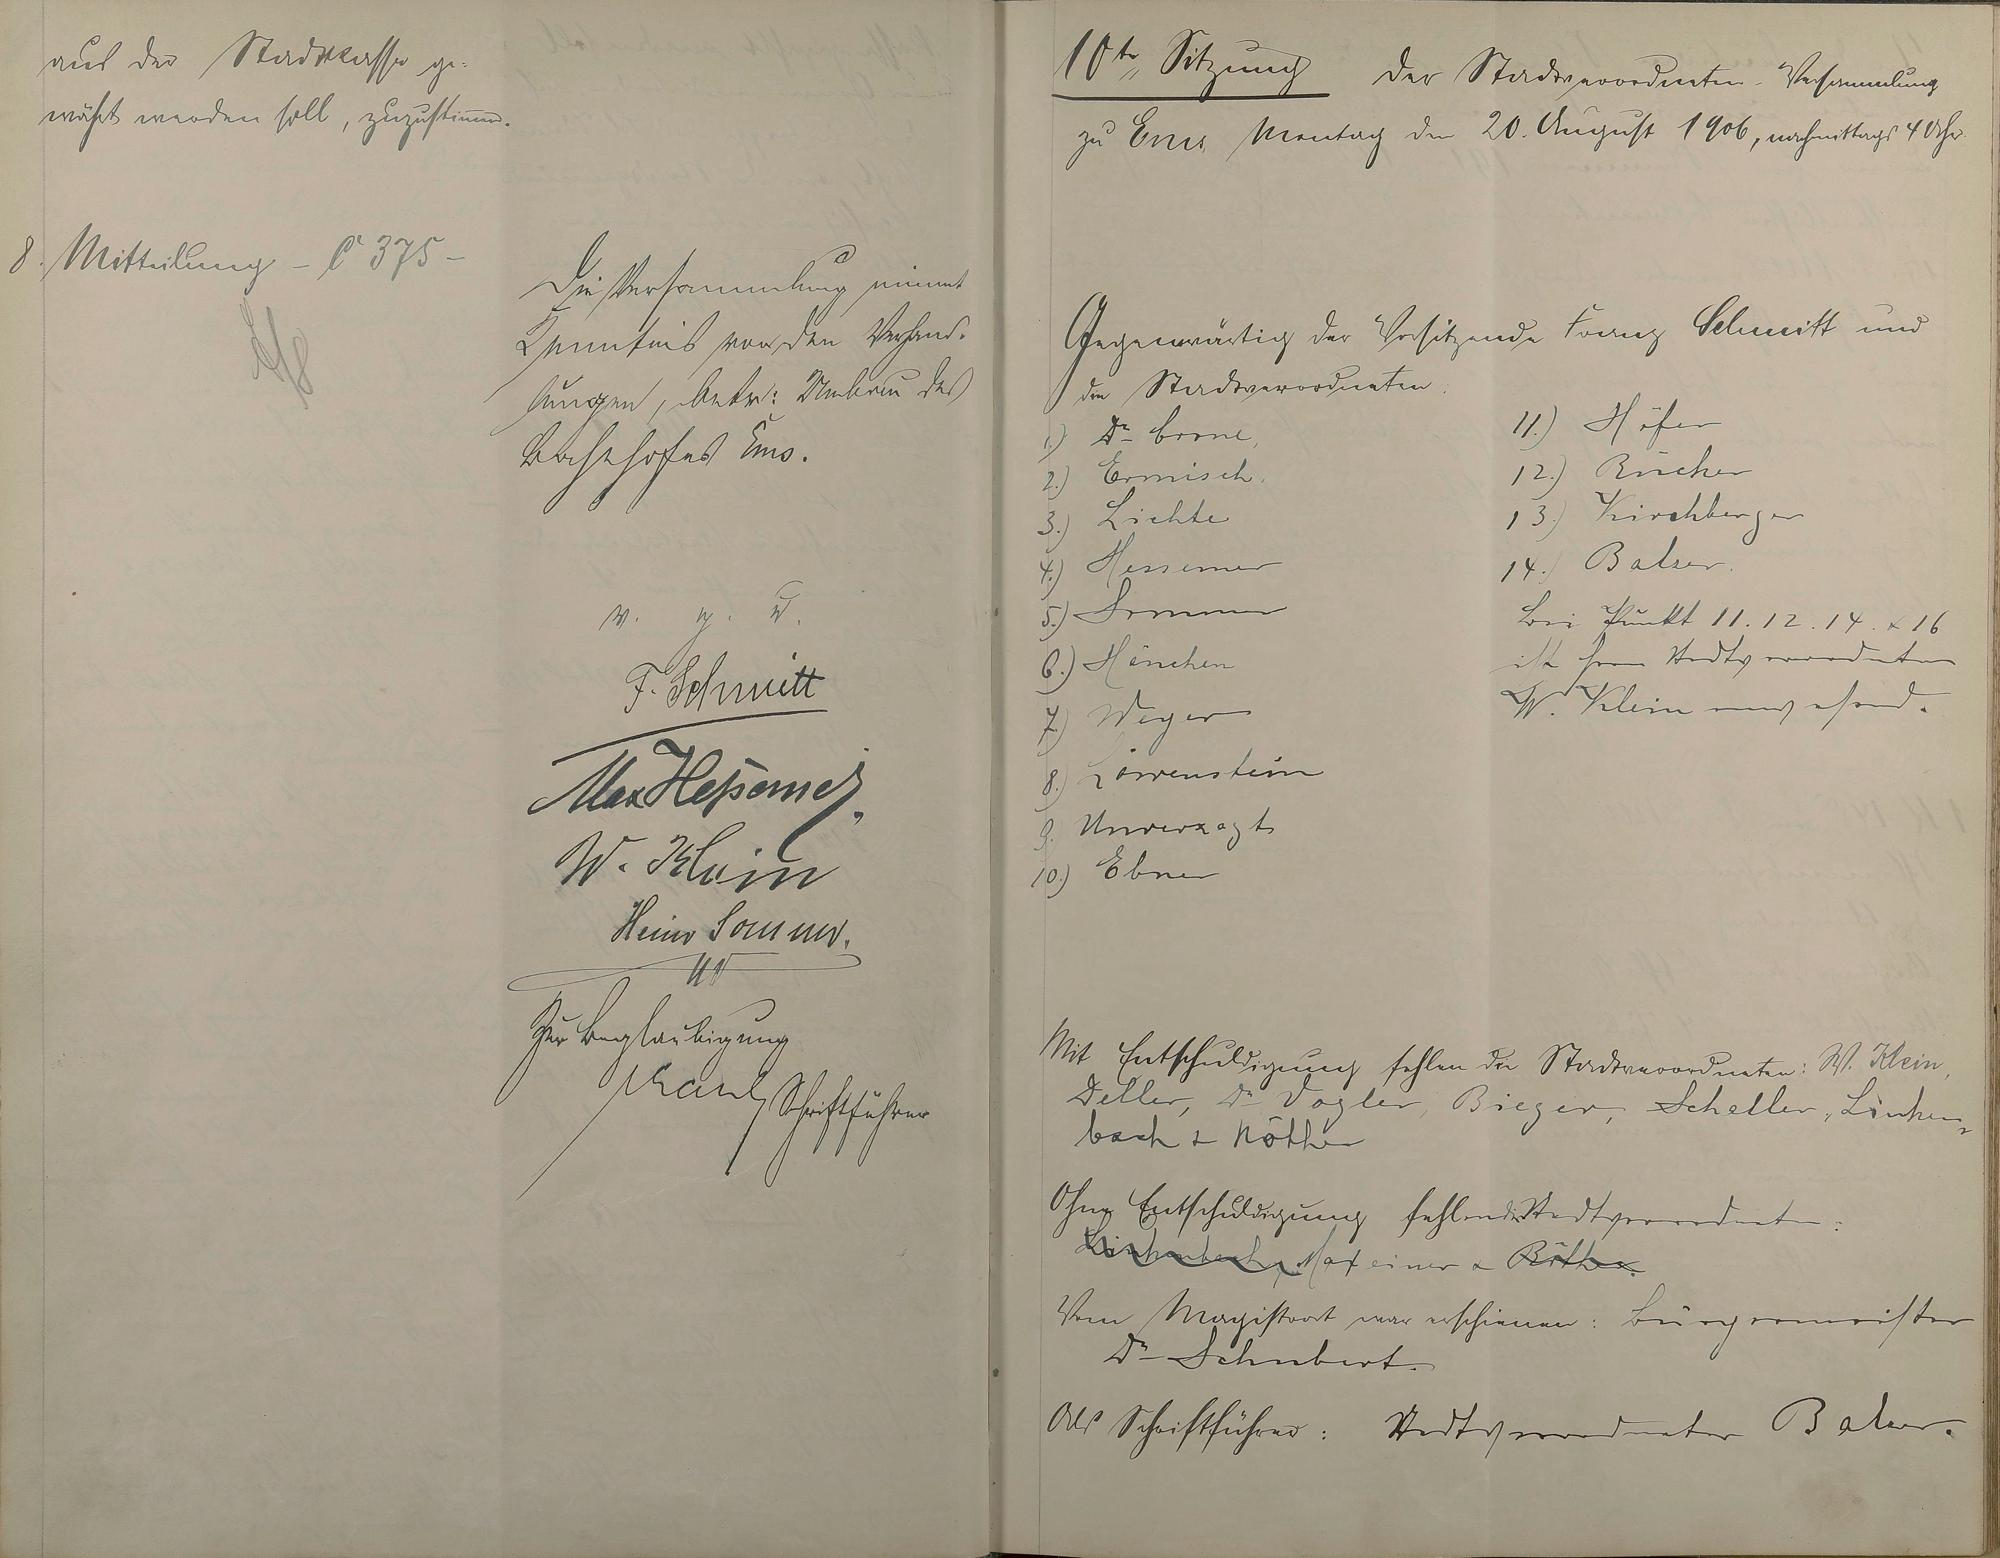 aus der Stadtkasse ge-
währt werden soll, zuzustimmen.
8. Mitteilung - C 375 -
Die Versammlung nimmt
Kenntnis von den Verhand-
lungen, betr: Umbau des
Bahnhofes Ems.
v. g. u.
F. Schmitt
Max Heßemer.
W. Klein
Heinr Sommer.
Zur Beglaubigung
Schriftführer
10te Sitzung der Stadtverordneten-Versammlung
zu Ems Montag den 20. August 1906, nachmittags 4 Uhr.
Gegenwärtig der Vorsitzende Franz Schmitt und
die Stadtverordneten:
1.) Dr. Crone,
2.) Ermisch.
3.) Lichte
4.) Hessemer
5.) Sommer
6.) Hänchen
7.) Weyer
8.) Löwenstein
9. Unverzagt
10.) Ebner
11.) Höfer
12.) Rücker
13.) Kirchberger
14.) Balzer.
Bei Punkt 11. 12. 14. & 16
ist Herr Stadtverordneter
W. Klein anwesend.
Mit Entschuldigung fehlen die Stadtverordneten: W. Klein,
Deller, Dr. Vogler, Bieger, Scheller, Linken-
bach & Röther
Ohne Entschuldigung fehlen die Stadtverordneten:
Linkenbach, Maxeiner & Röther.
Vom Magistrat war erschienen: Bürgermeister
Dr. Schubert.
Als Schriftführer: Stadtverordneter Balzer.